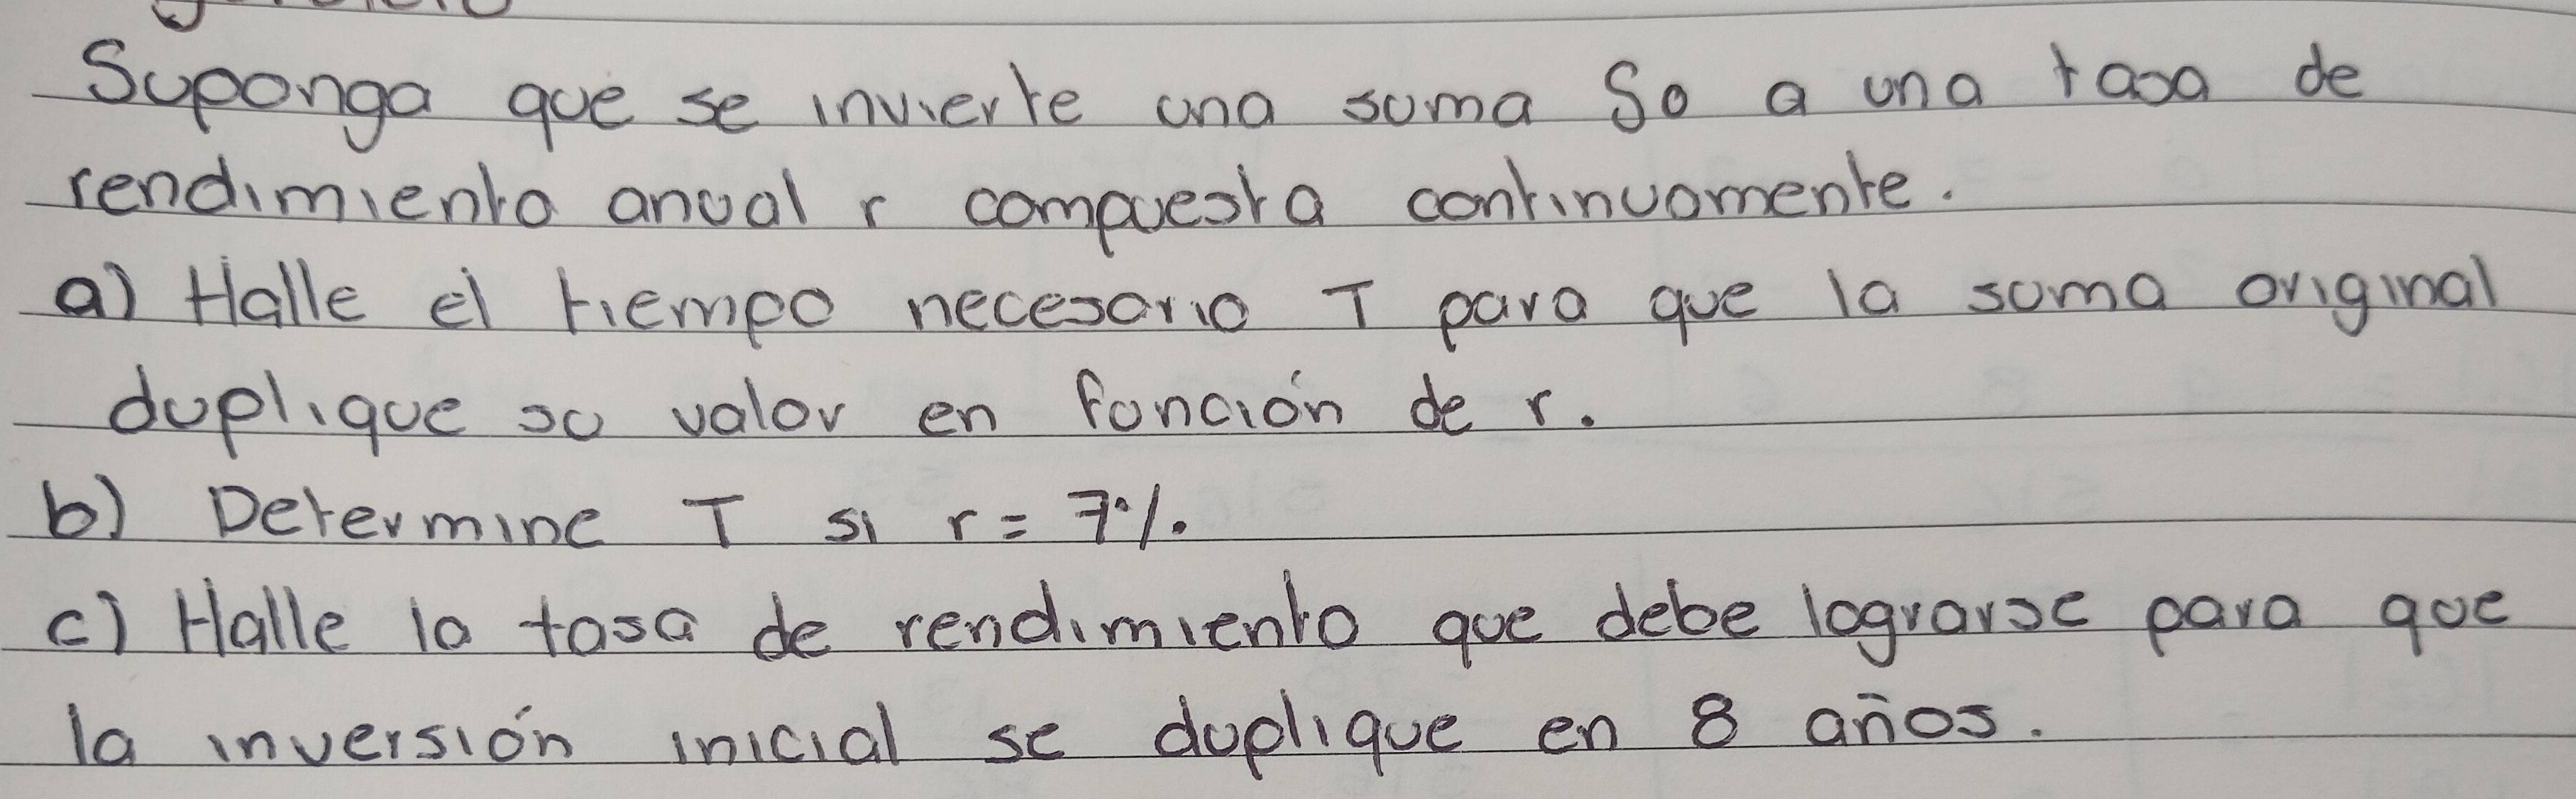 Suponga que se invierte una suma So a una tasa de
rendimiento anual r compuesta continuamente.
a) Halle el tiempo necesario T para que la suma original
duplique su valor en función de r.
b) Determine T si r = 7%.
c) Halle la tasa de rendimiento que debe lograrse para que
la inversión inicial se duplique en 8 años.